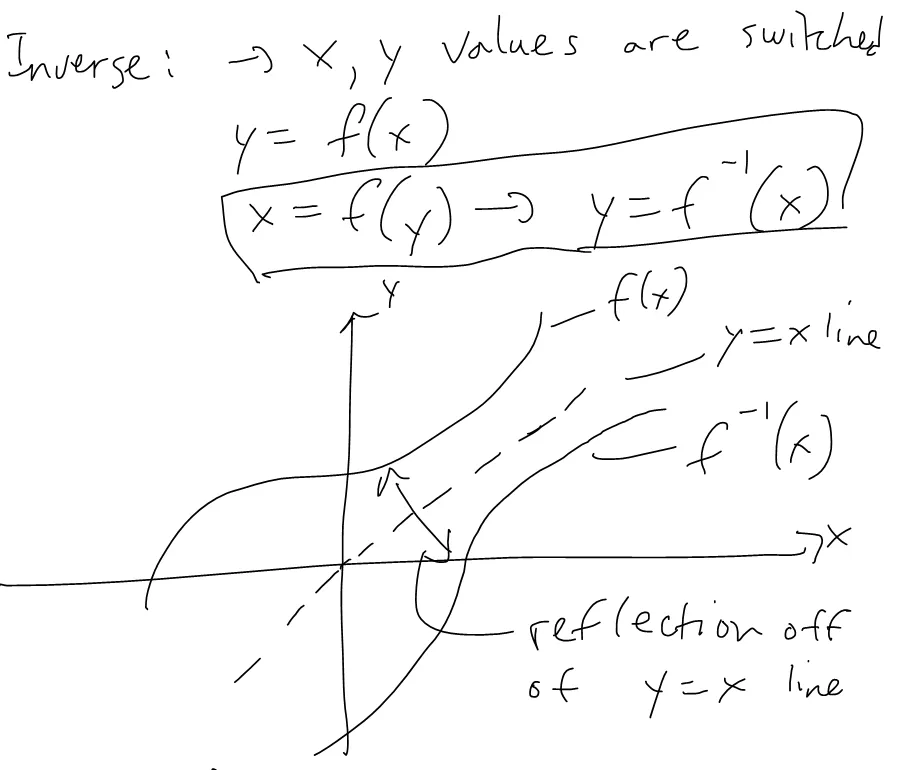 Inverse: → x, y values are switched
y = f(x)
x = f(y) → y = f⁻¹(x)
y
f(x)
y = x line
f⁻¹(x)
x
reflection off
of y = x line